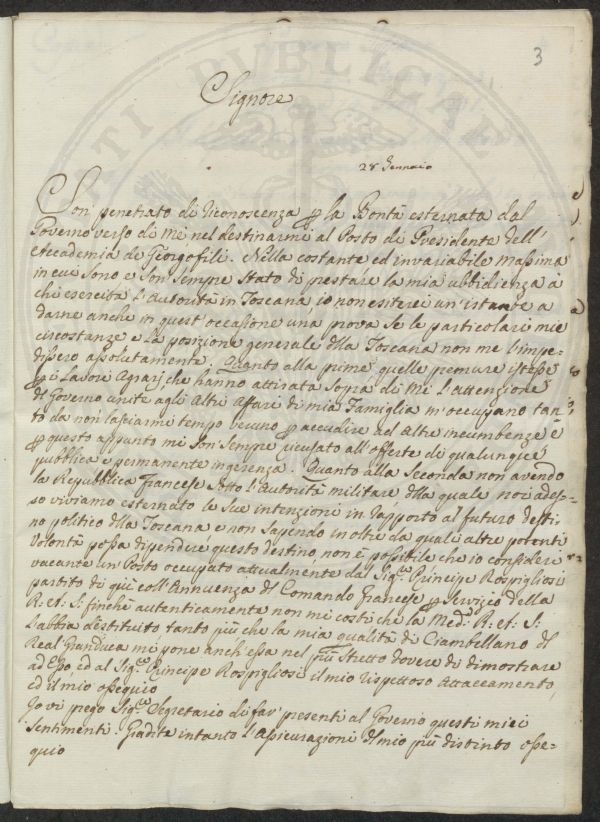 3
Signore
28 Gennaio
Son' penetrato di riconoscenza p la Bontà esternata dal
Governo verso di me nel destinarmi al Posto di Presidente dell'
Accademia de Georgofili. Nella costante ed invariabile massima
in cui sono e son' sempre stato di prestare la mia ubbidienza à
chi esercita l'Autorità in Toscana, io non esiterei un' istante a
darne anche in quest' occasione una prova se le particolari mie
circostanze e la posizione generale dlla Toscana non me l'impe-
dissero assolutamente. Quanto alla prima quelle premure istesse
p i Lavori Agrarj che hanno attirata sopra di me l'attenzione
dl Governo unite agli Altri Affari di mia Famiglia m'occupano tan-
to da non lasciarmi tempo veruno p accudire ad Altre incumbenze è
p questo appunto mi son' sempre ricusato all' offerte di qualunque
pubblica e permanente ingerenza. Quanto alla seconda non avendo
la Repubblica Francese sotto l'Autorità militare dlla quale noi ades-
so viviamo esternato le sue intenzioni in rapporto al futuro desti-
no politico dlla Toscana e non sapendo inoltre da quali altre potenti
volontà possa dipendere questo destino non è possibile che io consideri
vacante un Posto occupato attualmente dal Sig.re Principe Rospigliosi
partito di quì coll' Annuenza dl Comando Francese p servizio della
R: et: S: finchè autenticamente non mi costi che la Med.a R: et: S:
l'abbia destituito tanto più che la mia qualità di Ciambellano dl
Real Granduca mi pone anch' essa nel più stretto dovere di dimostrare
ad Esso, ed al Sig.re Principe Rospigliosi il mio rispettoso attaccamento,
ed il mio ossequio
Io vi prego Sig.re Segretario di far' presenti al Governo questi miei
sentimenti. Gradite intanto l'Assicurazioni dl mio più distinto osse-
quio